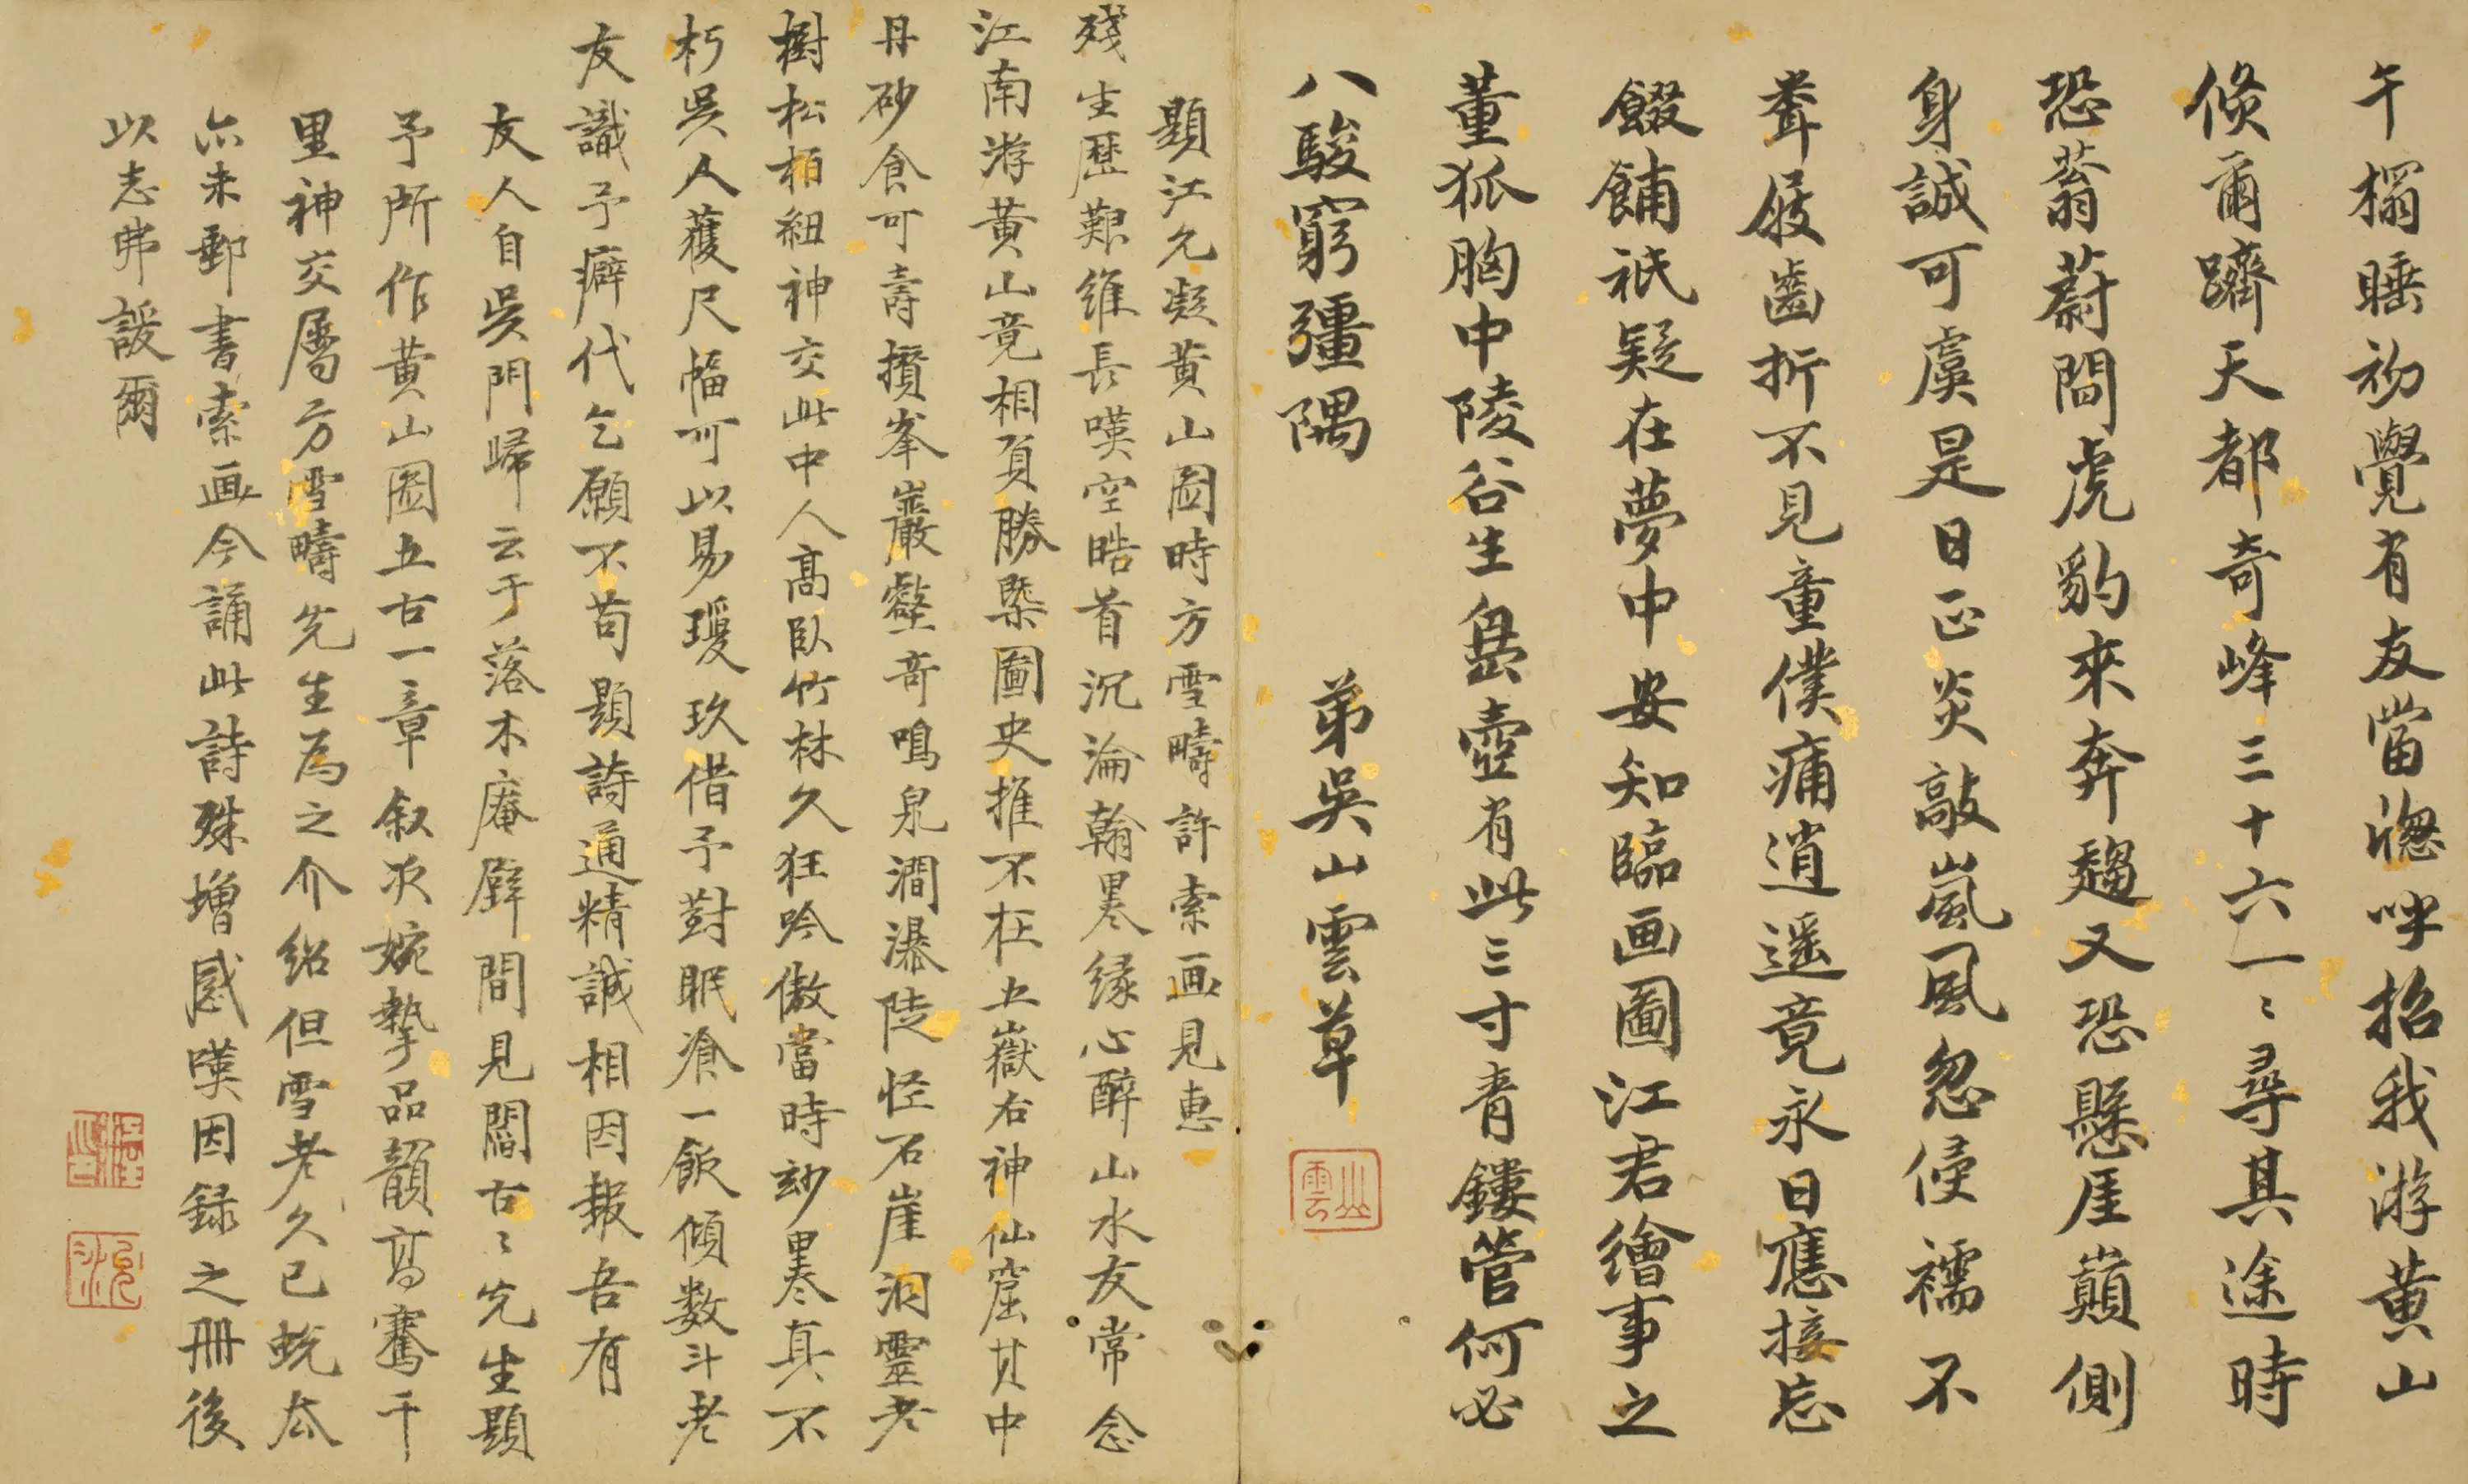 午榻睡初覺有友當牕呼招我游黄山
倐爾躋天都奇峰三十六一〻尋其途時
恐蓊蔚間虎豹來奔趨又恐懸厓巔側
身誠可虞是日正炎敲嵐風忽侵襦不
覺屐齒折不見童僕痡逍遥竟永日應接忘
餟餔祇疑在夢中安知臨画圖江君繪事之
董狐胸中陵谷生嵞壺有此三寸青鏤管何必
八駿窮彊隅
弟吳山雲草
山雲
題江允凝黄山圖時方雪疇許索画見惠
殘生歷艱維長嘆空皓首沉淪翰墨缘心醉山水友常念
江南游黄山竟相負勝槩圖史推不在五嶽右神仙窟其中
丹砂食可壽攢峯巖壑奇鳴泉澗瀑陡怪石崖洞靈老
樹松栢紐神交此中人高臥竹林久狂吟傲當時玅墨真不
朽吳人獲尺幅可以易瓊玖借予對眠飡一飯傾数斗老
友識予癖代乞願不苟題詩通精誠相因報吾有
友人自吳門歸云于落木庵壁間見閻古〻先生題
予所作黄山圖五古一章叙次婉摯品韻高騫千
里神交屬方雪疇先生為之介紹但雪老久已蛻太
六未郵書索画今誦此詩殊增感嘆因録之冊後
以志弗諼爾